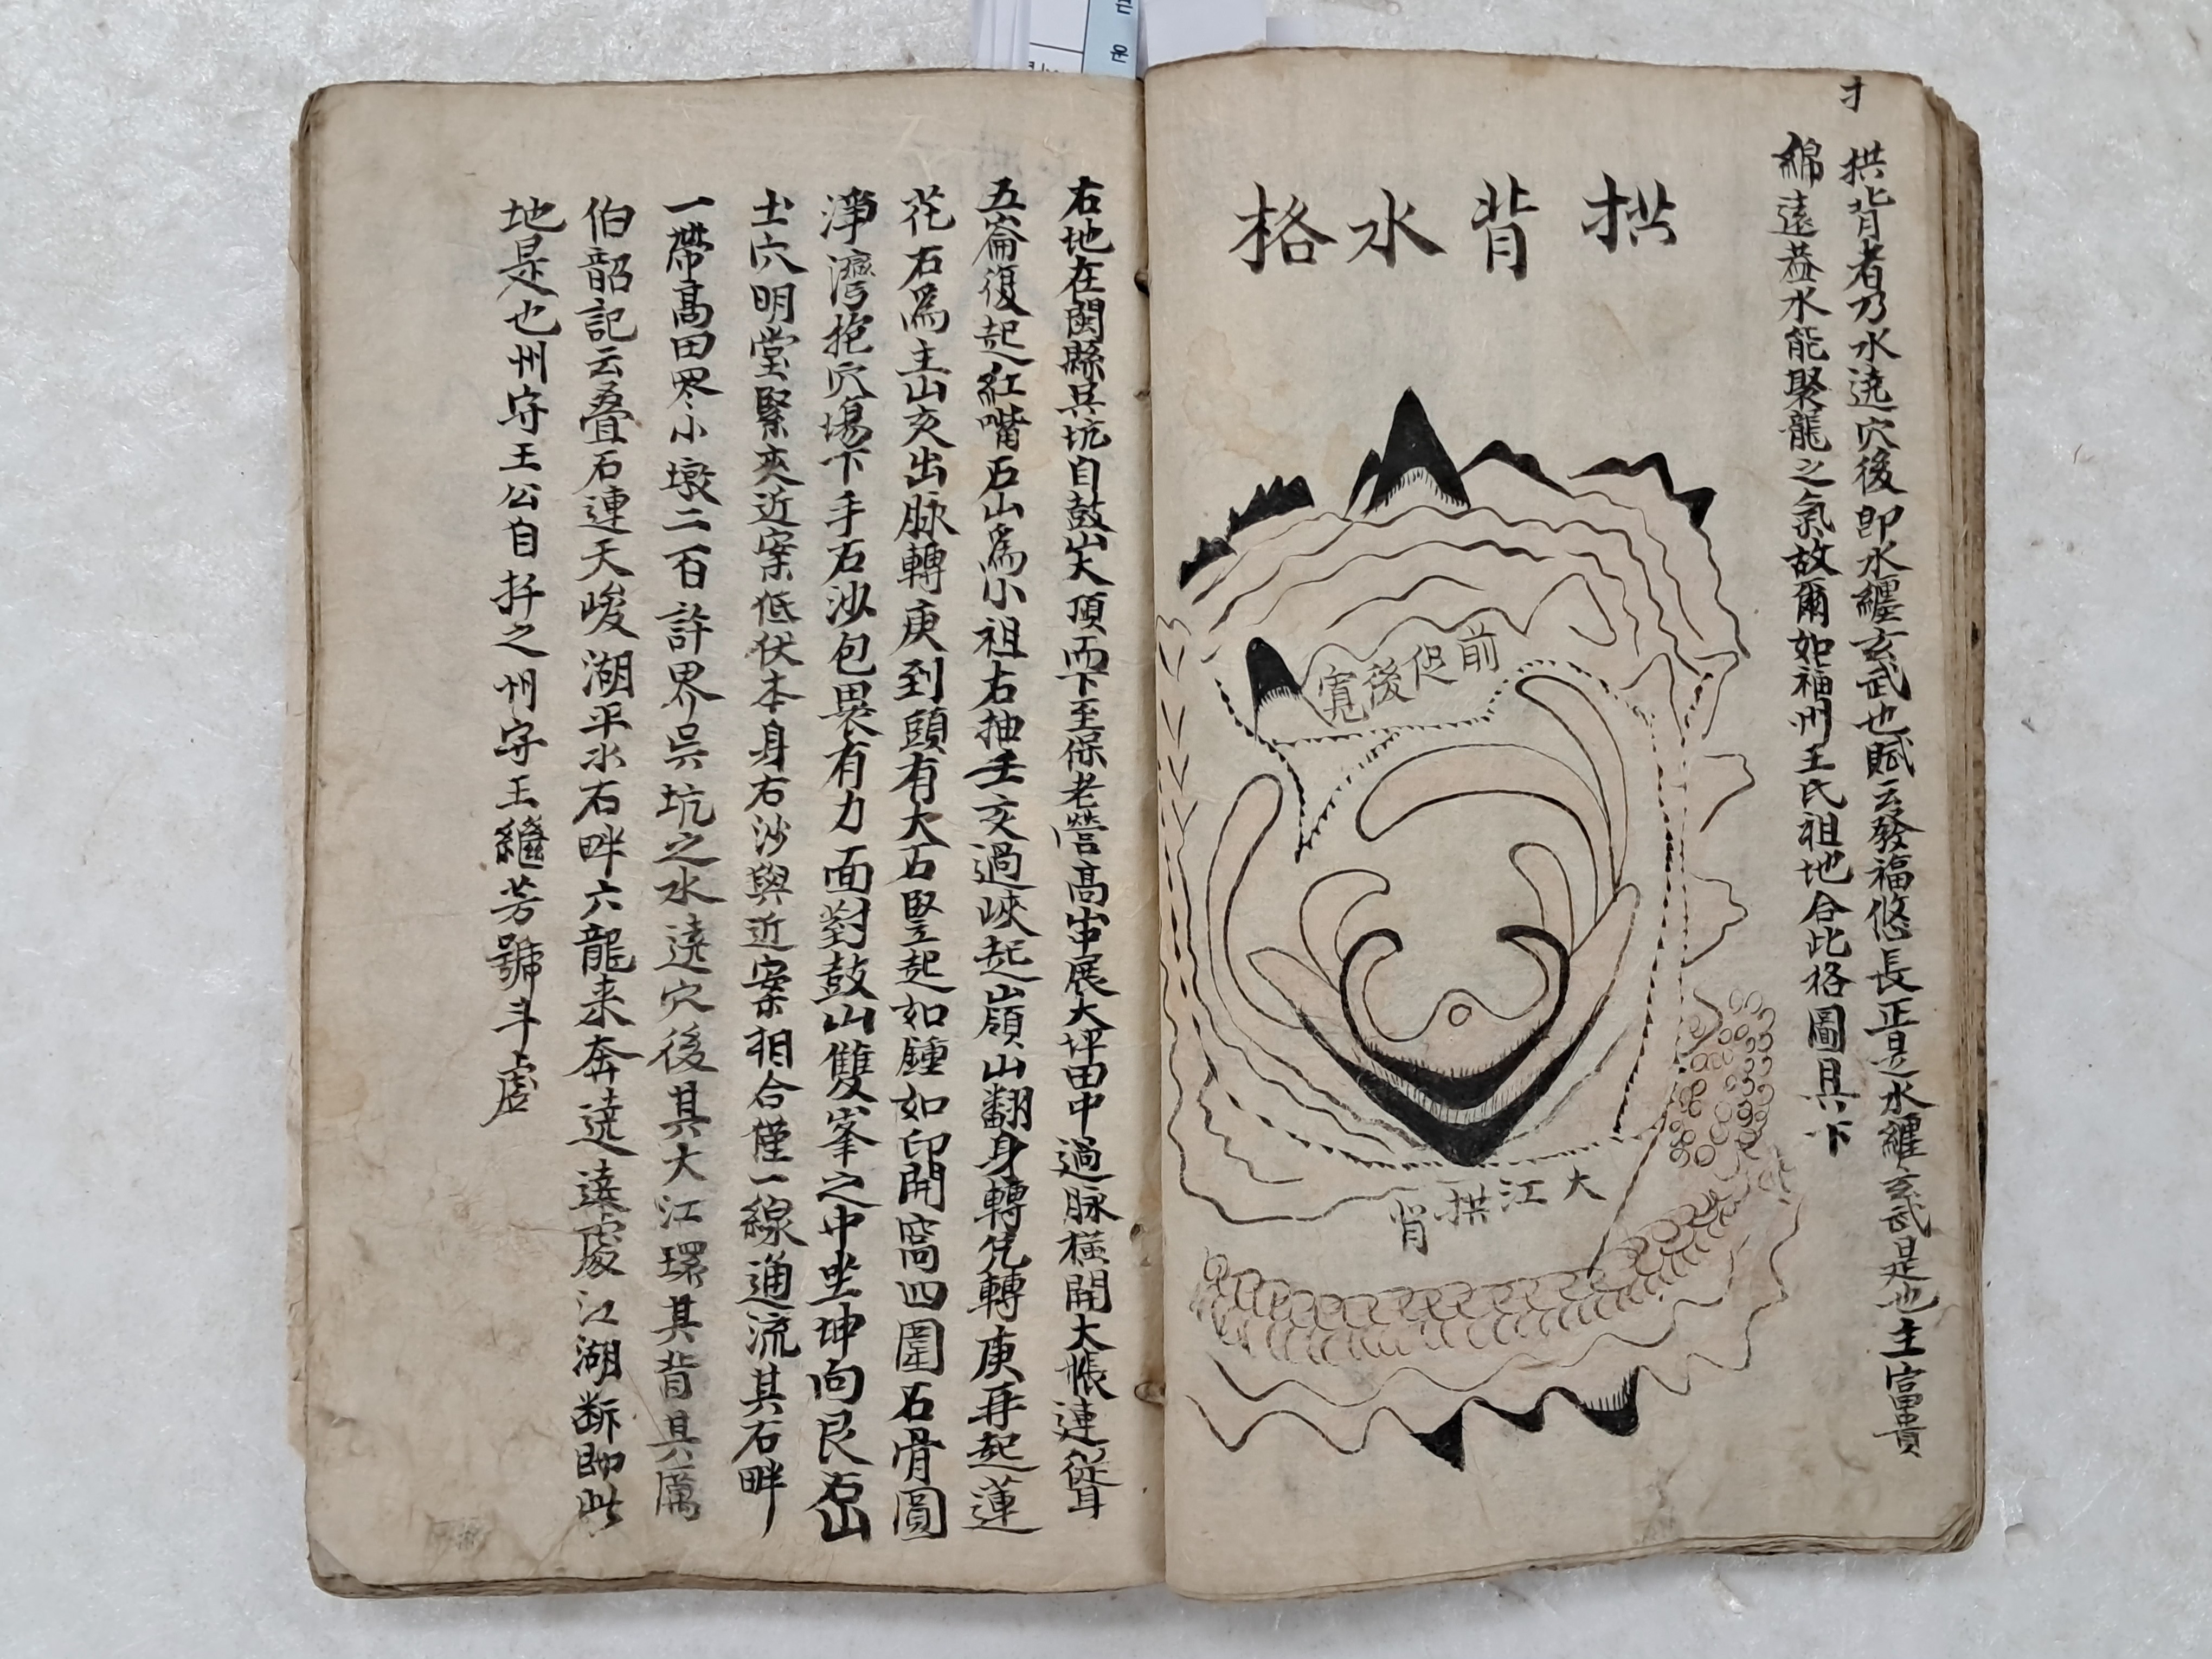 拱背者乃水遶穴後卽水纏玄武也賦云發福悠長正是水纏玄武是也主富貴
綿遠蓋水能聚龍之氣故爾如福州王氏祖地合此格圖具下
拱背水格
前促後寬
大江拱背
右地在閩縣其坑自鼓山大頂而下至保老營高串展大坪田中過脉橫開大帳連聳
五崙復起紅嘴石山爲小祖右抽壬亥過峽起山嶺山翻身轉凭轉庚再起蓮
花石爲主山亥出脉轉庚到頭有大石竪起如鍾如印開窩四圍石骨圓
淨灣抱穴塲下手石沙包畏有力面對鼓山雙峯之中坐坤向艮石山
土穴明堂緊夾近案低伏本身右沙與近案相合僅一線通流其右畔
一帶高田零小墩二百許界吳坑之水遶穴後其大江環其背具厲
伯韶記云叠石連天峻湖平水石畔六龍来奔遶遠處江湖斷卽此
地是也州守王公自扦之州守王繼芳號斗虛